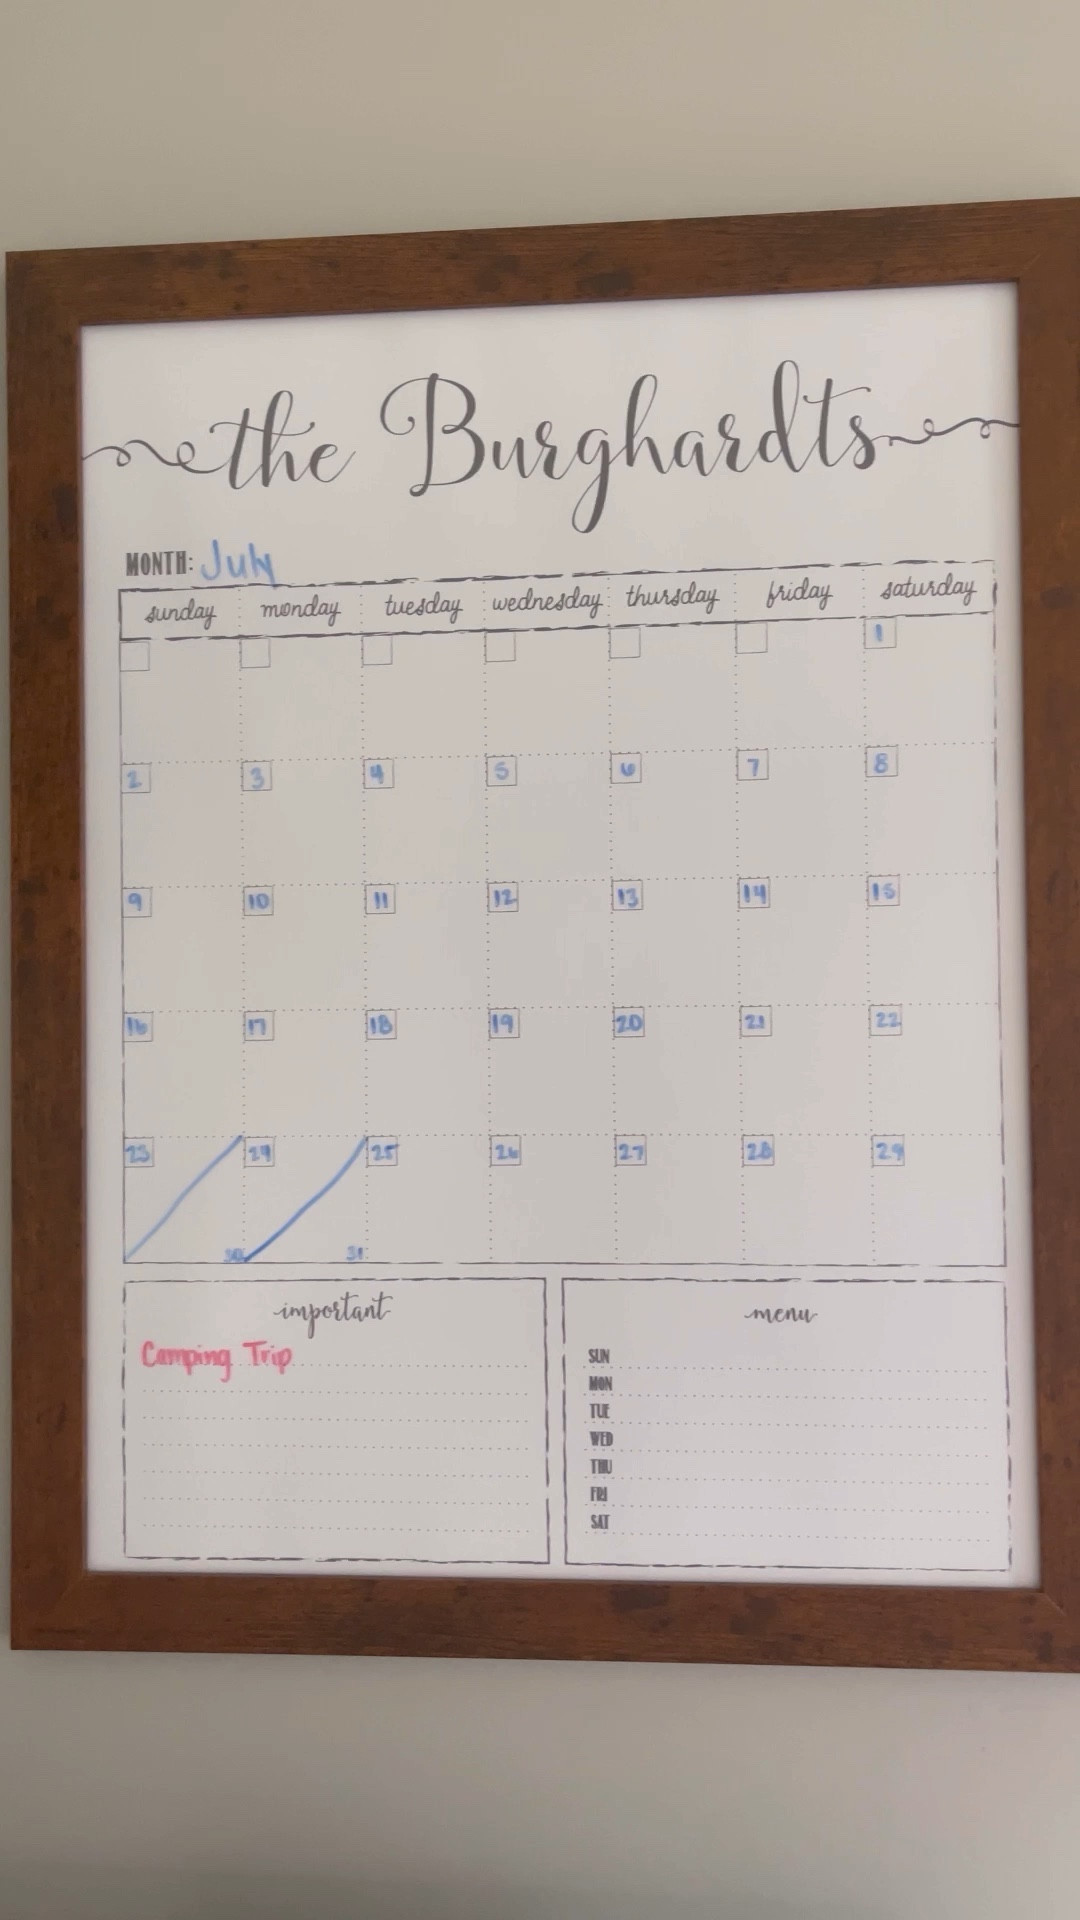 the Burghardts
MONTH: July
sunday monday tuesday wednesday thursday friday saturday
1
2 3 4 5 6 7 8
9 10 11 12 13 14 15
16 17 18 19 20 21 22
23 24 25 26 27 28 29
30 31
important
Camping Trip
menu
SUN
MON
TUE
WED
THU
FRI
SAT